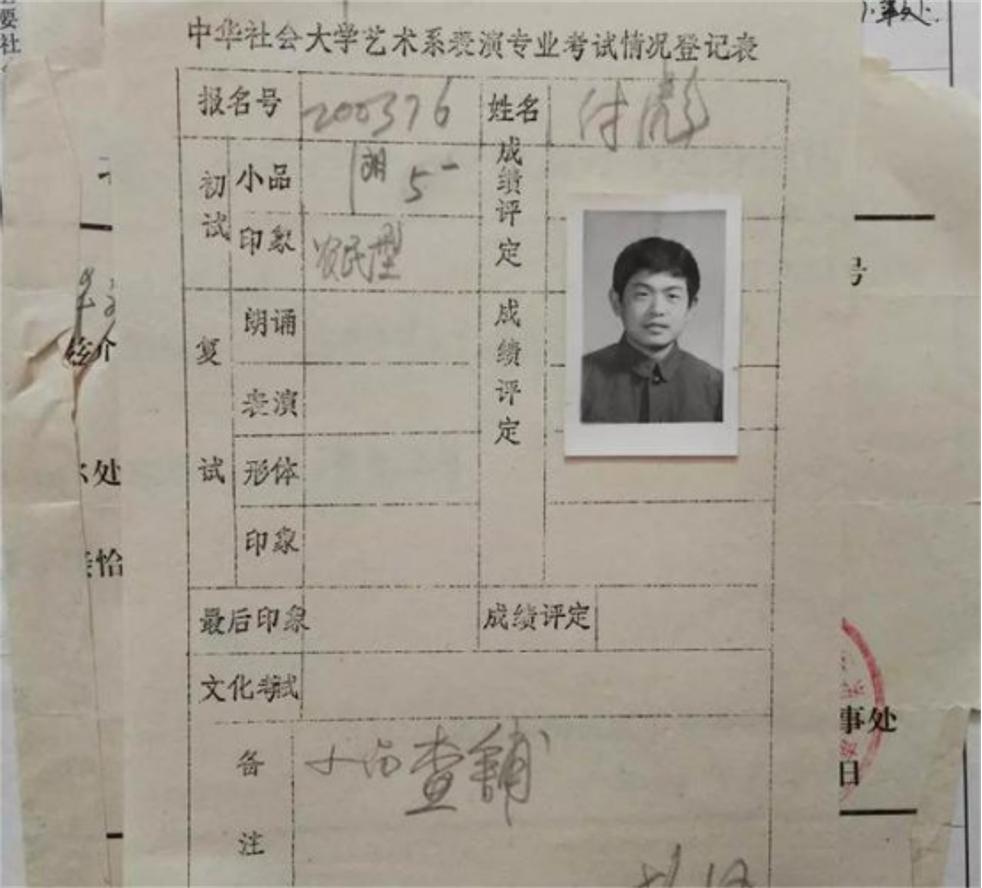 要
社
事处
中华社会大学艺术系表演专业考试情况登记表
报名号 200376 姓名 付彪
初试 小品 朗 5- 成绩评定
印象 农民型
复试 朗诵 成绩评定
表演
形体
印象
最后印象 成绩评定
文化考试
备注 小品查铺
号
介
处
恰
事处
日